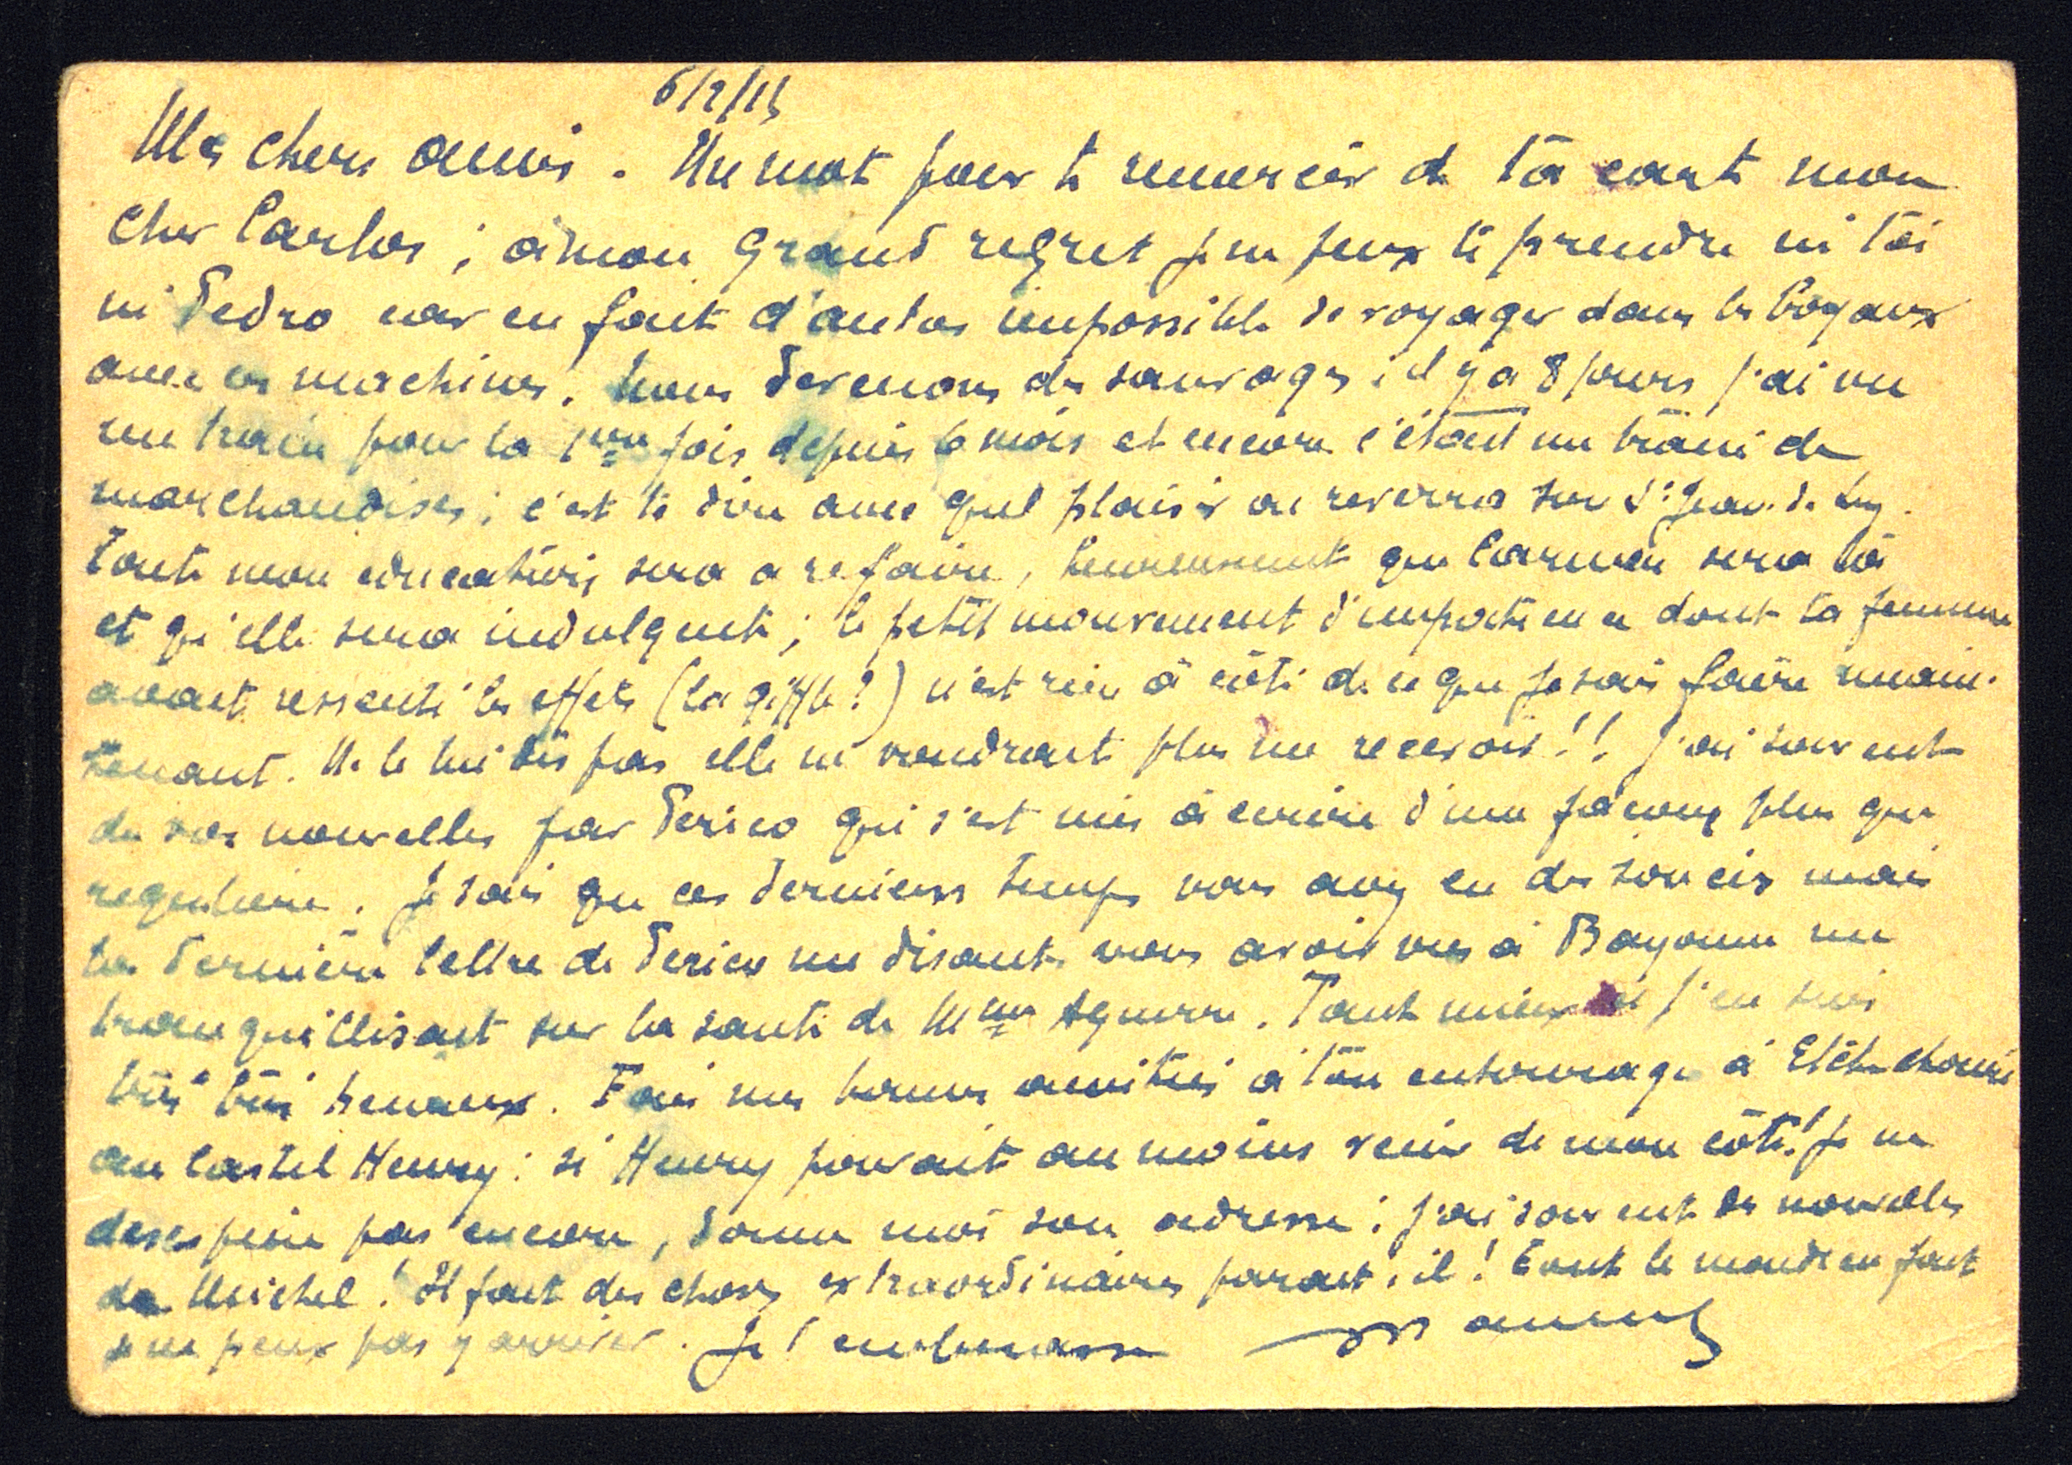 6/2/15
Mes chers amis. Un mot pour te remercier de ta carte mon
cher Carlos ; à mon grand regret je ne peux te prendre ni toi
ni Pedro car en fait d'autos impossible de voyager dans les boyaux
avec ces machines. Nous devenons des sauvages ; il y a 8 jours j'ai vu
un train pour la 1ère fois depuis 6 mois et encore c'était un train de
marchandises ; c'est te dire avec quel plaisir on reverra son St Jean de Luz.
Toute mon education sera a refaire, heureusement que Carmen sera là
et qu'elle sera indulgente ; le petit mouvement d'impatience dont ta femme
avait ressenti les effets (la giffle?) n'est rien à côté de ce que je sais faire main-
tenant. Ne le lui dis pas elle ne voudrait plus me recevoir!! J'ai souvent
de vos nouvelles par Perico qui s'est mis à ecrire d'une façon plus que
reguliere. Je sais que ces derniers temps vous avez eu des soucis mais
la dernière lettre de Perico me disant vous avoir vus à Bayonne me
tranquillisait sur la santé de Mme Aguirre. Tant mieux et j'en suis
très très heureux. Fais mes bonnes amitiés à ton entourage à
au Castel Henry : si Henry pouvait au moins venir de mon côté! Je ne
desespere pas encore, donne moi son adresse ; j'ai souvent des nouvelles
de Michel! Il fait des choses extraordinaires parait-il! Tout le monde en fait
je ne peux pas y arriver. Je t'embrasse